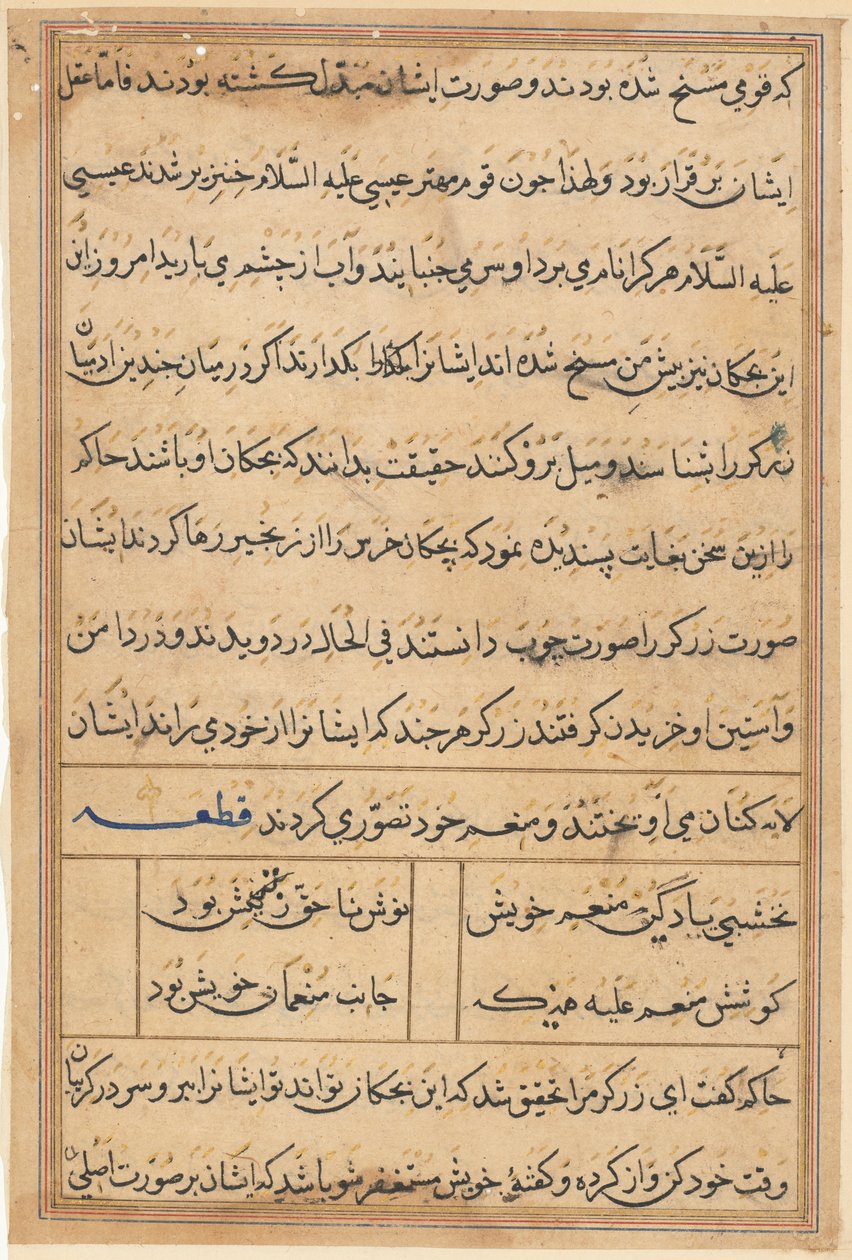 که قومی مسخ شده بودند و صورت ایشان مبدّل کشته بودند فامّا عقل
ایشان بر قرار بود ولهذا جون قوم مهتر عیسی علیه السّلام خنزیر شدند عیسی
علیه السّلام هر کرا نام می برد او سر می جنبایند و آب از چشم می بارید امروز این
این بجکان نیز پیش من مسخ شده اند ایشانرا بکدارند اکر در میان جندین ادمیان
زرکر را بشناسند و میل برو کنند حقیقت بدانند که بجکان او باشند حاکم
را ازین سخن بغایت پسندیده نمود که بچکان خرس را از زنجیر رها کردند ایشان
صورت زرکر را صورت چوب دانستند فی الحال در دویدند و در دامن
و آستین او خزیدن کرفتند زرکر هر جند که ایشانرا از خود می راند ایشان
لابه کنان می آویختند و منعم خود تصوّری کردند قطعه
نخشبی یاد کن منعم خویش نوش تنا حقّ ز نیش بود
کوشش منعم علیه جانب منعمان خویش بود
حاکم کفت ای زرکر مرا تحقیق شد که این بجکان تواند تو ایشانرا ببر و سر در کریبان
وقت خود کن و از کرده و کفتهٔ خویش مستغفر شو باشد که ایشان بر صورت اصلی